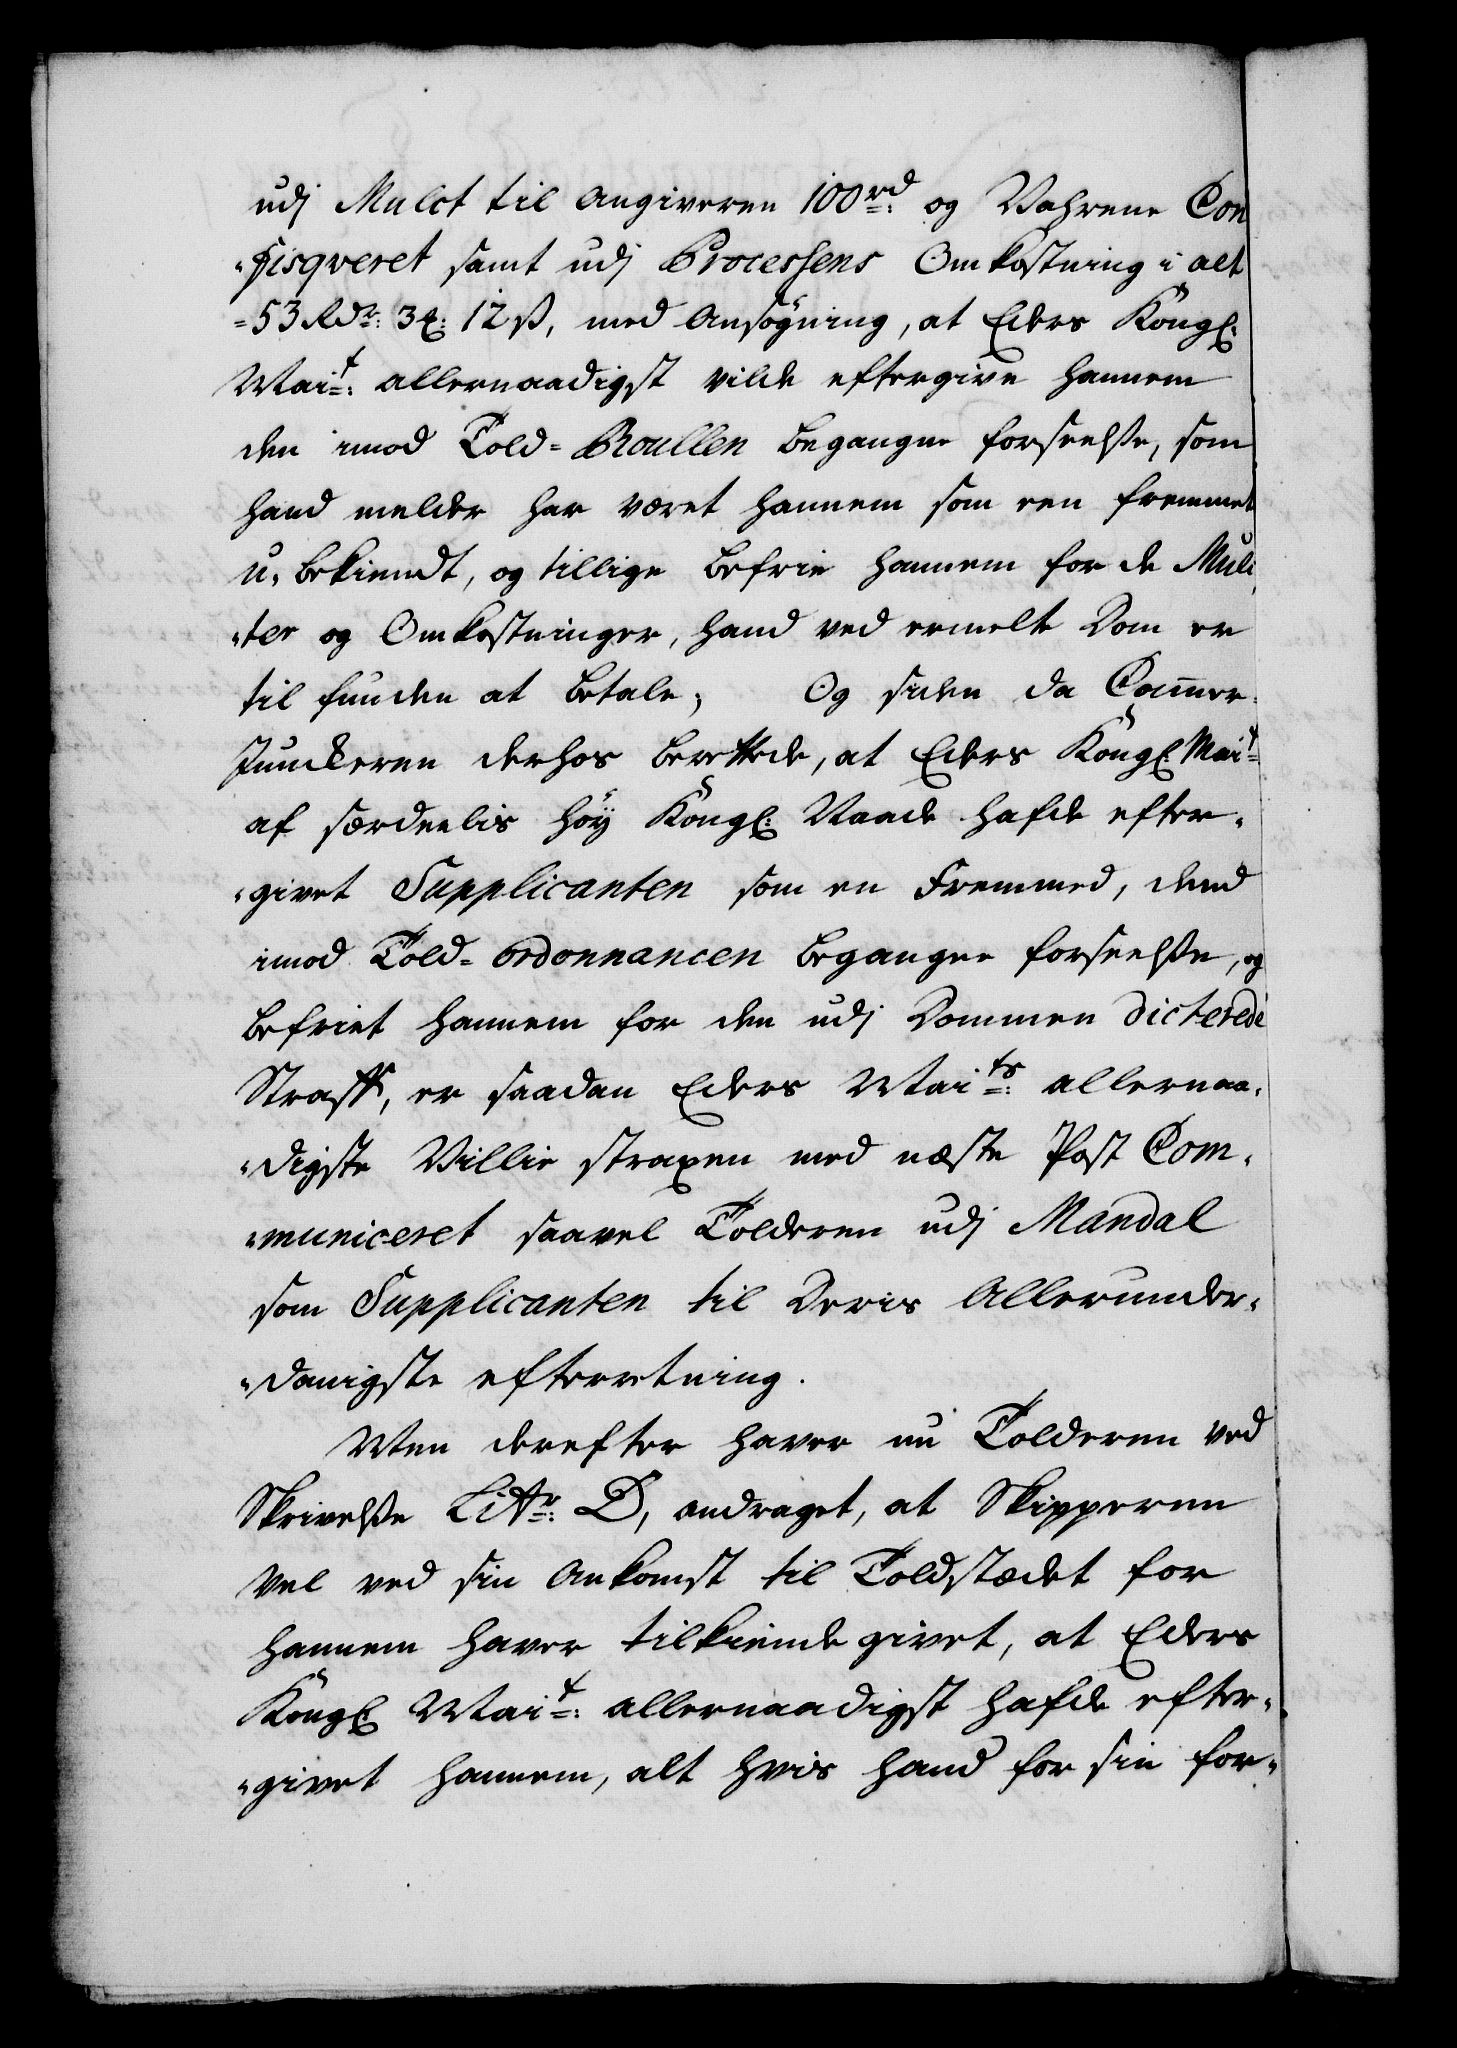 udj Mulct til Angiveren 100rd: og Vahrene Con
-fisqveret samt udj Processens Omkostning i alt
=53 Rdr: 3 ℳ: 12 ß, med Ansøgning, at Eders Kongl:
Mait: allernaadigst vilde eftergive hannem
den imod Told-Roullen begangne forseelße, som
hand melder har været hannem som een fremmet
u-bekiendt, og tillige befrie hannem for de Mulc
-ter og Omkostninger, hand ved ermelte Dom er
til funden at betale; Og siden da Cam̅er-
Junckeren derhos berettede, at Eders Kongl: Mait
af særdeelis høy Kongl: Naade hafde efter-
-givet Supplicanten som en Fremmed, dend
imod Told-ordonnancen begangne forseelße, og
befriet hannem for den udj Dommen dicterede
Straff, er saadan Eders Maits: allernaa-
-digste Villie straxen med næste Post Com-
-municeret saavel Tolderen udj Mandal
som Supplicanten til Deris Allerunder-
-danigste efterretning.
Men derefter haver nu Tolderen ved
Skrivelße Littr: D, andraget, at Skipperen
vel ved sin Ankomst til Toldstædet for
hannem haver tilkiende givet, at Eders
Kongl: Mait: allernaadigst hafde efter-
-givet hannem, alt hvis hand for sin for-